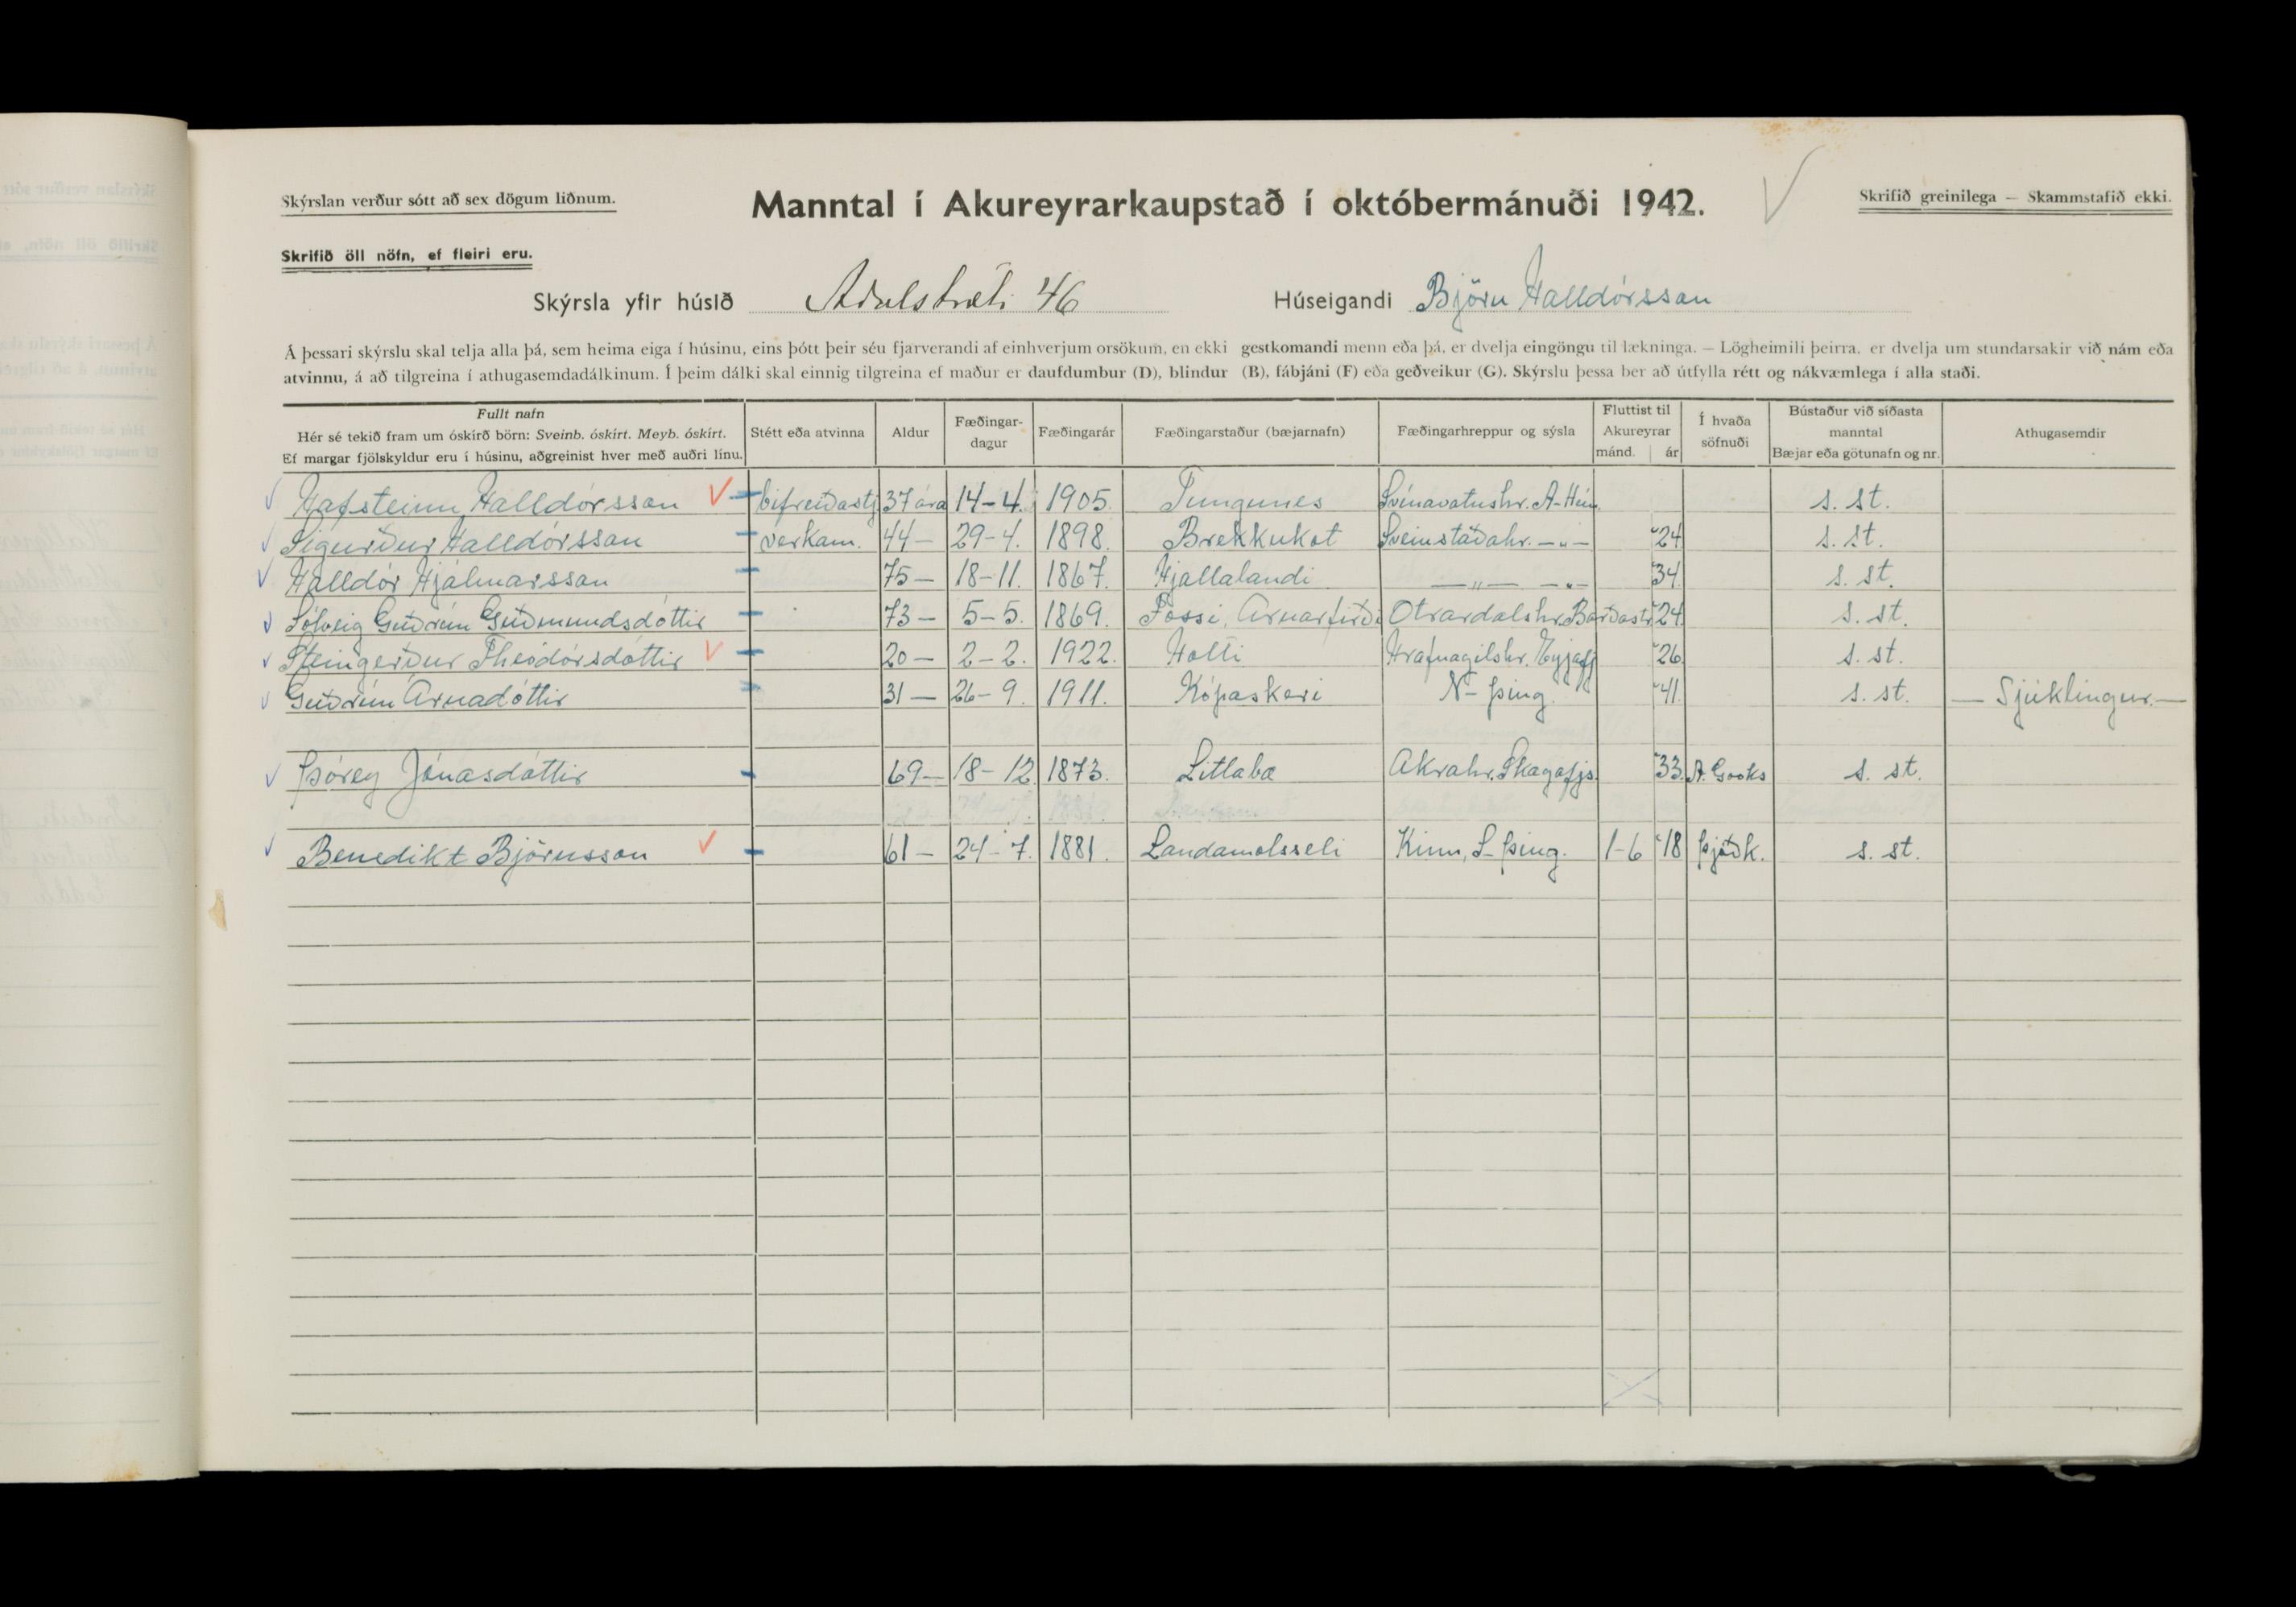 Skýrslan verður sótt að sex dögum liðnum.
Manntal í Akureyrarkaupstað í októbermánuði 1942.
Skrifið greinilega — Skammstafið ekki.
Skrifið öll nöfn, ef fleiri eru.
Skýrsla yfir húsið Aðalstræti 46 Húseigandi Björn Halldórsson
Á þessari skýrslu skal telja alla þá, sem heima eiga í húsinu, eins þótt þeir séu fjarverandi af einhverjum orsökum, en ekki gestkomandi menn eða þá, er dvelja eingöngu til lækninga. — Lögheimili þeirra, er dvelja um stundarsakir við nám eða
atvinnu, á að tilgreina í athugasemdadálkinum. Í þeim dálki skal einnig tilgreina ef maður er daufdumbur (D), blindur (B), fábjáni (F) eða geðveikur (G). Skýrslu þessa ber að útfylla rétt og nákvæmlega í alla staði.
Fullt nafn
Hér sé tekið fram um óskírð börn: Sveinb. óskírt. Meyb. óskírt.
Ef margar fjölskyldur eru í húsinu, aðgreinist hver með auðri línu.
Stétt eða atvinna
Aldur
Fæðingar-
dagur
Fæðingarár
Fæðingarstaður (bæjarnafn)
Fæðingarhreppur og sýsla
Fluttist til
Akureyrar
mánd. ár
Í hvaða
söfnuði
Bústaður við síðasta
manntal
Bæjar eða götunafn og nr.
Athugasemdir
Hafsteinn Halldórsson bifreiðastj. 37 ára 14-4. 1905. Tungunes Svínavatnshr. A-Hún. s. st.
Sigurður Halldórsson verkam. 44 — 29-4. 1898. Brekkukot Sveinstaðahr. —„— '24 s. st.
Halldór Hjálmarsson 75 — 18-11. 1867. Hjallalandi —„— —„— '34 s. st.
Sólveig Guðrún Guðmundsdóttir 73 — 5-5. 1869. Fossi, Arnarfirði Otrardalshr. Barðastr. '24 s. st.
Steingerður Theódórsdóttir 20 — 2-2. 1922. Holti Hrafnagilshr. Eyjafj '26 s. st.
Guðrún Árnadóttir 31 — 26-9. 1911. Kópaskeri N-Þing. '41. s. st. — Sjúklingur. —
Þórey Jónasdóttir 69 — 18-12. 1873. Litlabæ Akrahr. Skagafjs. '33. A. Gooks s. st.
Benedikt Björnsson 61 — 24-7. 1881. Landamotsseli Kinn, S-Þing. 1-6 '18 Þjóðk. s. st.